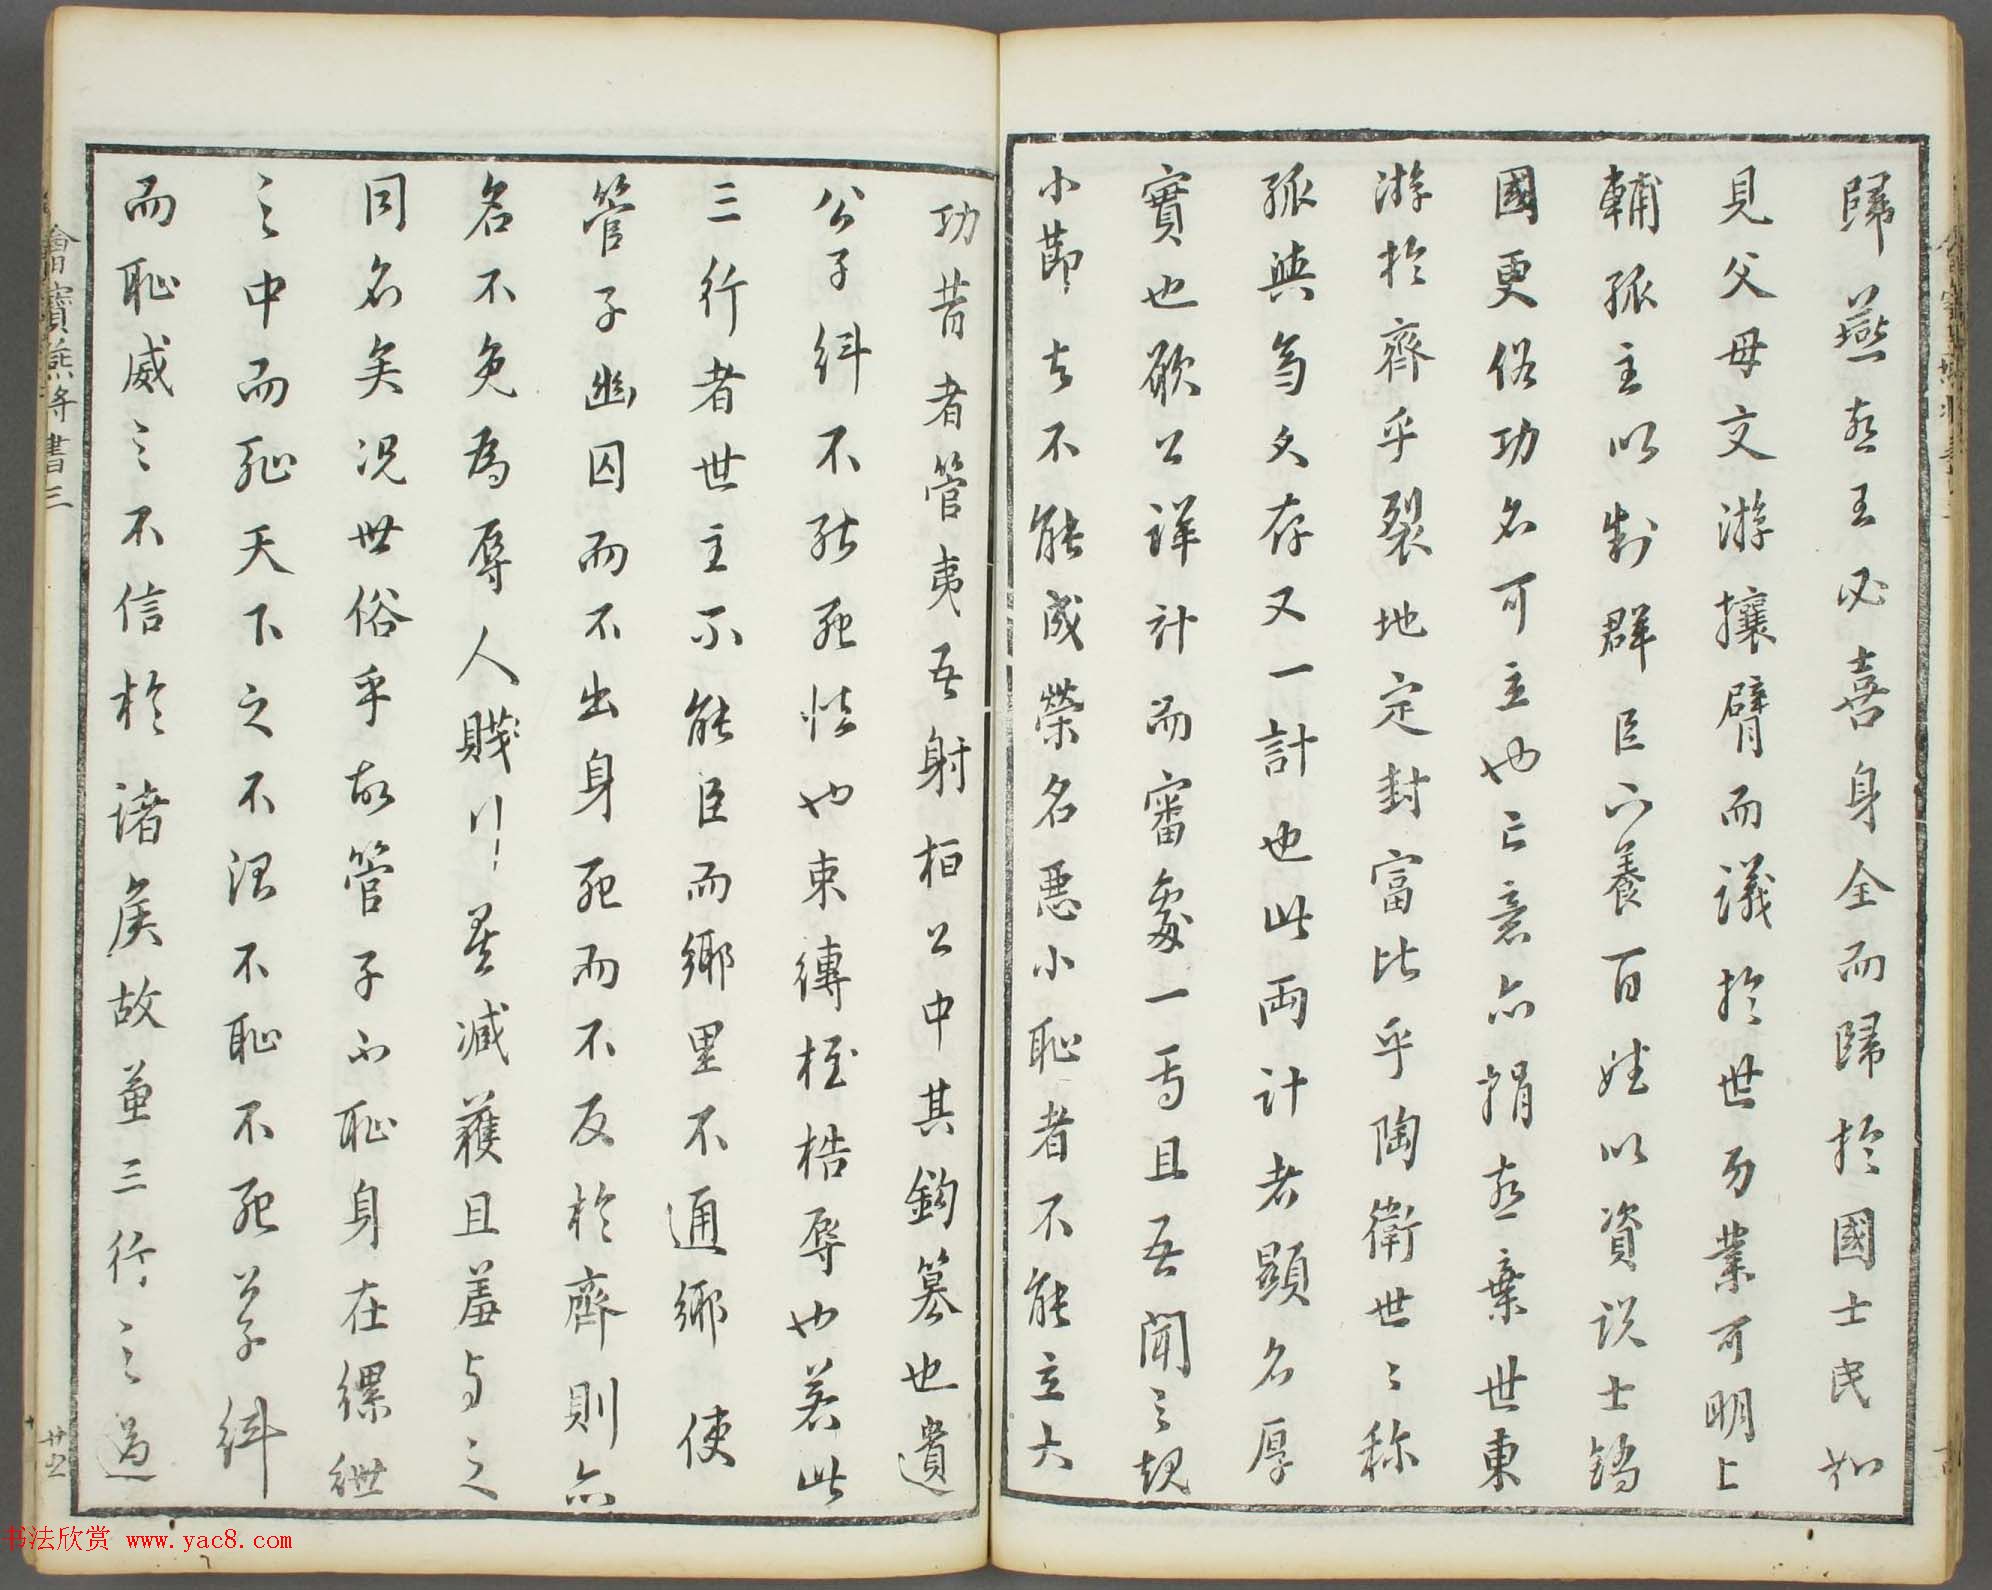 歸燕燕王必喜身全而歸於國士民如
見父母交游攘臂而議於世功業可明上
輔孤主以制群臣下養百姓以資説士矯
國更俗功名可立也亡意亦捐燕棄世東
游於齊乎裂地定封富比乎陶衛世〻称
孤與齊久存又一計也此兩計者顯名厚
實也欲公詳計而審處一焉且吾聞之規
小節者不能成榮名惡小恥者不能立大
功昔者管夷吾射桓公中其鉤篡也遺
公子糾不能死怯也束縛桎梏辱也若此
三行者世主不能臣而鄉里不通鄉使
管子幽囚而不出身死而不反於齊則亦
名不免為辱人賤行矣臧獲且羞與之
同名矣況世俗乎故管子不恥身在縲紲
之中而恥天下之不治不恥不死公子糾
而恥威之不信於諸侯故兼三行之過
燕將書三
廿五
书法欣赏 www.yac8.com